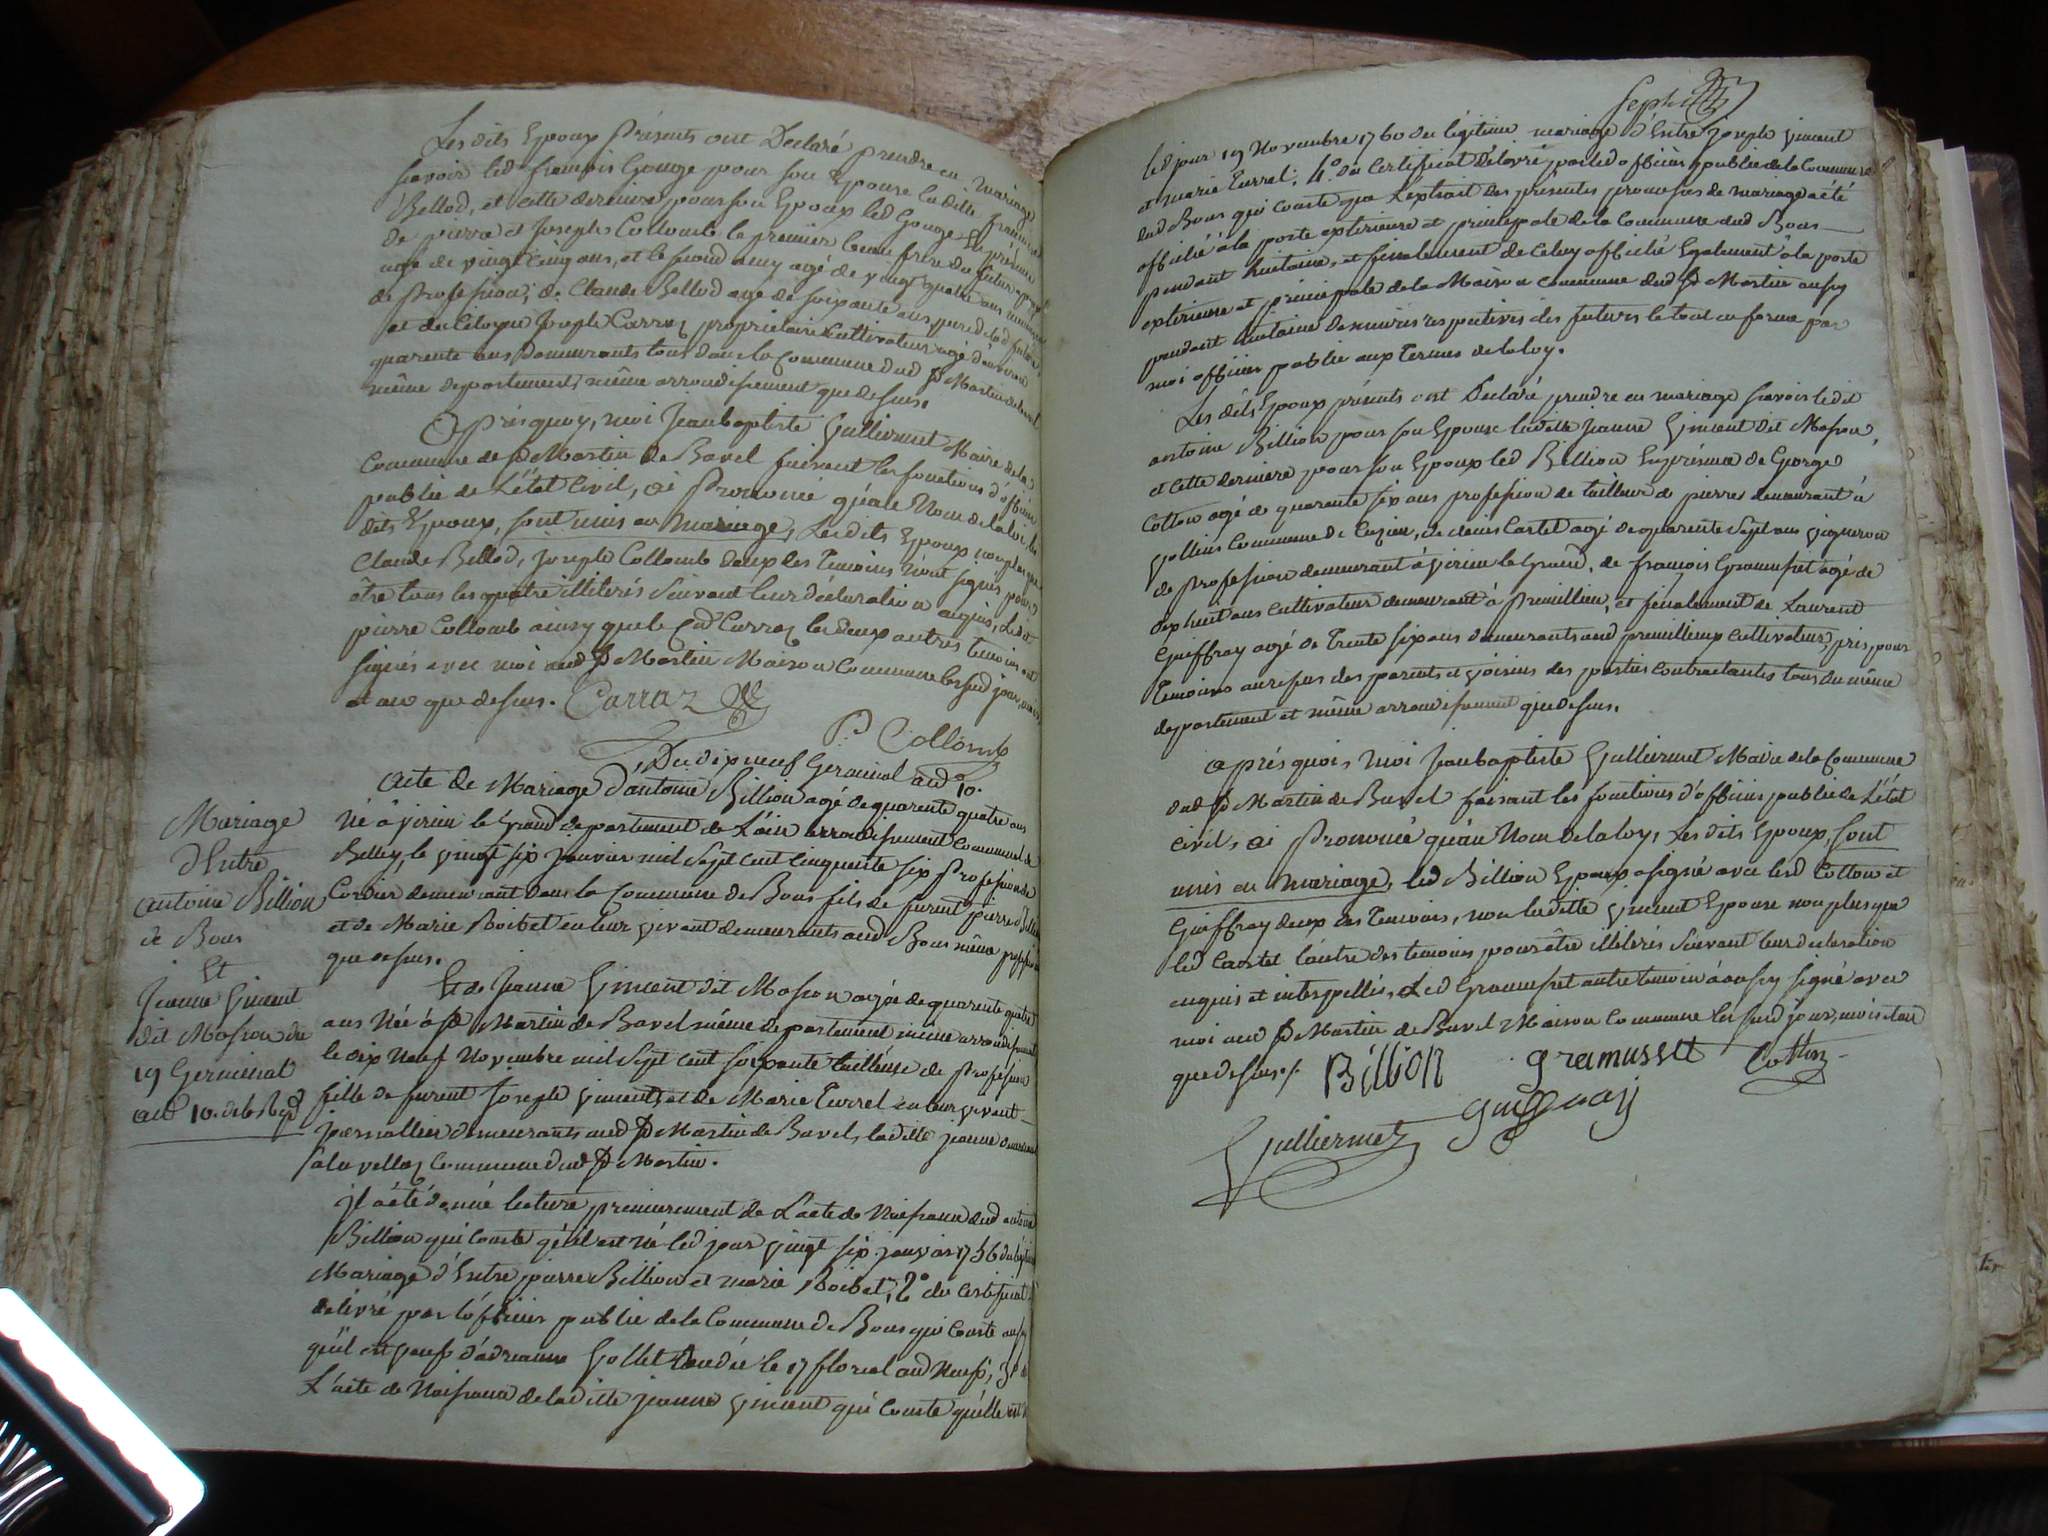 Les dits Epoux Présents ont Déclaré prendre en Mariage
savoir led. françois Gouge pour son Epouse la ditte françoise
Bellod, et cette derniere pour son Epoux led Gouge En présence
de pierre et Joseph Collomb le premier beau frere du futur
agé de vingt cinq ans, et le second amy agé de vingt quatre ans
de Profession, de Claude Bellod agé de soixante ans pere de lad future
et du Citoyen Joseph Carraz propriétaire Cultivateur agé d'environ
quarente ans Demeurants tous dans la Commune dud St Martin de bavel
même departement, même arrondissement que dessus.
Après quoy, moi Jeanbaptiste Gulliermet Maire de la
Commune de St Martin de Bavel faisant les fonctions d'officier
public de L'état Civil, ai Prononcé qu'au Nom de la loi, les
dits Epoux, sont unis en Mariage, Lesdits Epoux non plus que
Claude Bellod, Joseph Collomb deux des Temoins n'ont signés pour
être tous les quatre illiterés Suivant leur déclaration acquis, Ledit
pierre Collomb ainsy que le Cad Carraz les deux autres temoins ont
signés avec moi aud St Martin Maison Commune les jour, mois
et an que dessus. Carraz
P. Collomb
Du dix neuf Germinal and 10.
Acte de Mariage d'antoine Billion agé de quarente quatre ans
Né à virieu le Grand departement de L'ain arrondissement Communal de
Belley, le vingt six janvier mil Sept cent cinquante six Profession de
Cordier demeurant dans la Commune de Bons fils de furent pierre Billion
et de Marie Boibet en leur vivant demeurants aud Bons même profession
que dessus.
Mariage
d'Entre
antoine Billion
de Bons
Et
Jeanne Vincent
dit Masson du
19 Germinal
and 10. de la Rep
Et de Jeanne Vincent dit Masson agée de quarente quatre
ans Née à St Martin de Bavel même departement même arrondissement
le dix Neuf Novembre mil Sept cent soixante tailleuse de profession
fille de furent Joseph Vincent, et de Marie Turrel en leur vivant
journallier demeurants aud St Martin de Bavel, laditte jeanne demeurant
à la vellaz Commune dud St Martin.
Il a été donné lecture premierement de L'acte de Naissance dud antoine
Billion qui Conste qu'il est Né led jour vingt six janvier 1756 du légitime
Mariage d'Entre pierre Billion et marie Boibet, 2° du certificat
delivré par l'officier public de la Commune de Bons qui Conste aussy
qu'il est veuf d'adrianne Gollet decédée le 17 floreal and Neuf, 3° de
L'acte de Naissance de laditte jeanne Vincent qui Conste qu'elle est
Sept
led jour 19 Novembre 1760 du légitime mariage d'Entre joseph Vincent
et marie Turrel. 4.° du Certificat délivré par led officier public de la Commune
dud Bons qui Conste que L'extrait des présentes promesses de mariage a été
affiché à la porte exterieure et principale de la Commune dud Bons
pendant huitaine, et finalement de Celuy affiché Egalement à la porte
exterieure et principale de la Maison Commune dud St Martin aussy
pendant huitaine demeures respectives des futurs le tout en forme par
moi officier public aux Termes de la loy.
Les dits Epoux présents ont Declaré prendre en mariage savoir ledit
antoine Billion pour son Epouse laditte jeanne Vincent dit Masson,
et cette derniere pour son Epoux led Billion En présence de George
Cotton agé de quarante six ans profession de tailleur de pierre demeurant à
vollien Commune de Cuzieu, de Castel agé de quarente Sept ans vigneron
de profession demeurant à virieu le Grand, de françois Gramusset agé de
dix huit ans Cultivateur demeurant à Premillieu, et finalement de Laurent
Guiffray agé de Trente six ans demeurants aud premillieux Cultivateur, pris pour
Temoins au refus des parents et voisins des parties Contractantes tous du même
departement et même arrondissement que dessus.
Après quoi, Moi Jeanbaptiste Gulliermet Maire de la Commune
dud St Martin de Bavel faisant les fonctions d'officier public de L'état
Civil, ai Prononcé qu'au Nom de la loy, Les dits Epoux, sont
unis en mariage, led Billion Epoux a signé avec lesd Cotton et
Guiffray deux des Temoins, non laditte Vincent Epouse non plus que
led Castel l'autre des temoins pour être illiterés Suivant leur declaration
enquis et interpellés, Led Gramusset autre temoin a aussy signé avec
moi aud St Martin de Bavel Maison Commune les susd jour, mois et an
que dessus. Billion gramusset Cotton
Gulliermet guiffray